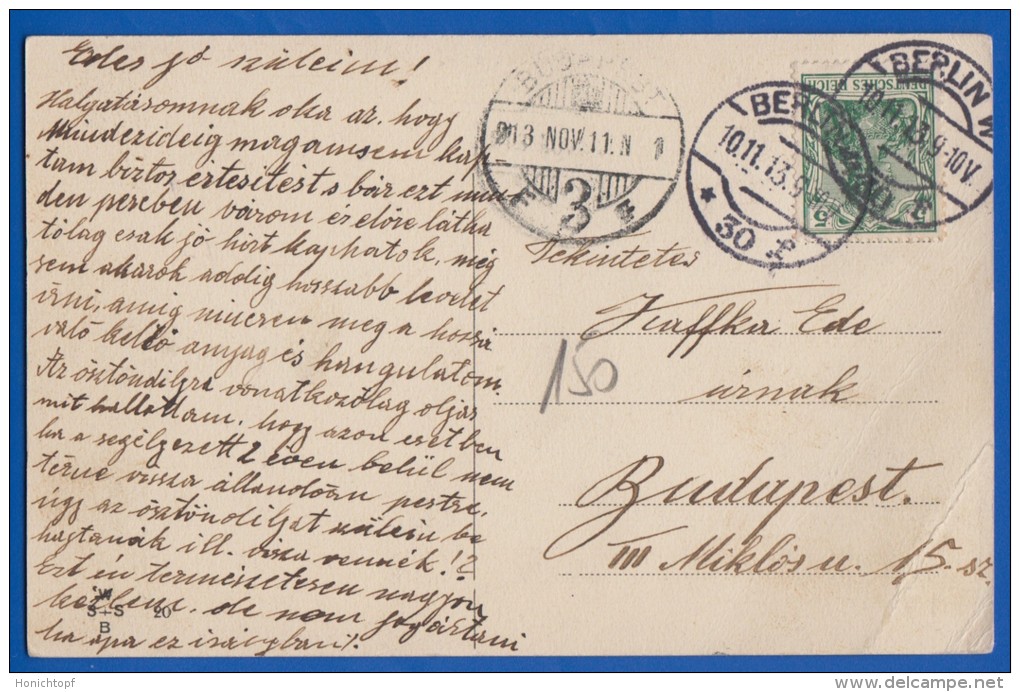 Édes jó szüleim!
Halgatásomnak oka az, hogy
Mindezideig magamsem kap-
tam biztos értesítést s bár ezt min
den percben várom és előre látha
tólag csak jó hírt kaphatok, még
sem akarok addig hosszabb levelet
írni, amíg nincsen meg a hozzá
való kellő anyag és hangulatom.
Az ösztöndíjra vonatkozólag oljas
mit hallottam, hogy azon esetben
ha a segélyezett 2 éven belül nem
térne vissza állandóan pestre,
úgy az ösztöndíjat szülein be
hajtanák ill. vissza vennék!?
Ezt én természetesen nagyon
kétlem, de nem
ha apa ez írásban!
S+S 20
B
BUDAPEST
913 NOV. 11. N 1
3
BERLIN W
10.11.13. 9-10V.
BERLIN
10.11.13. 9
* 30
DEUTSCHES REICH
5
Tekintetes
Kaffka Ede
úrnak
150
Budapest.
III Miklós u. 15. sz.
Honichtopf
www.delcampe.net